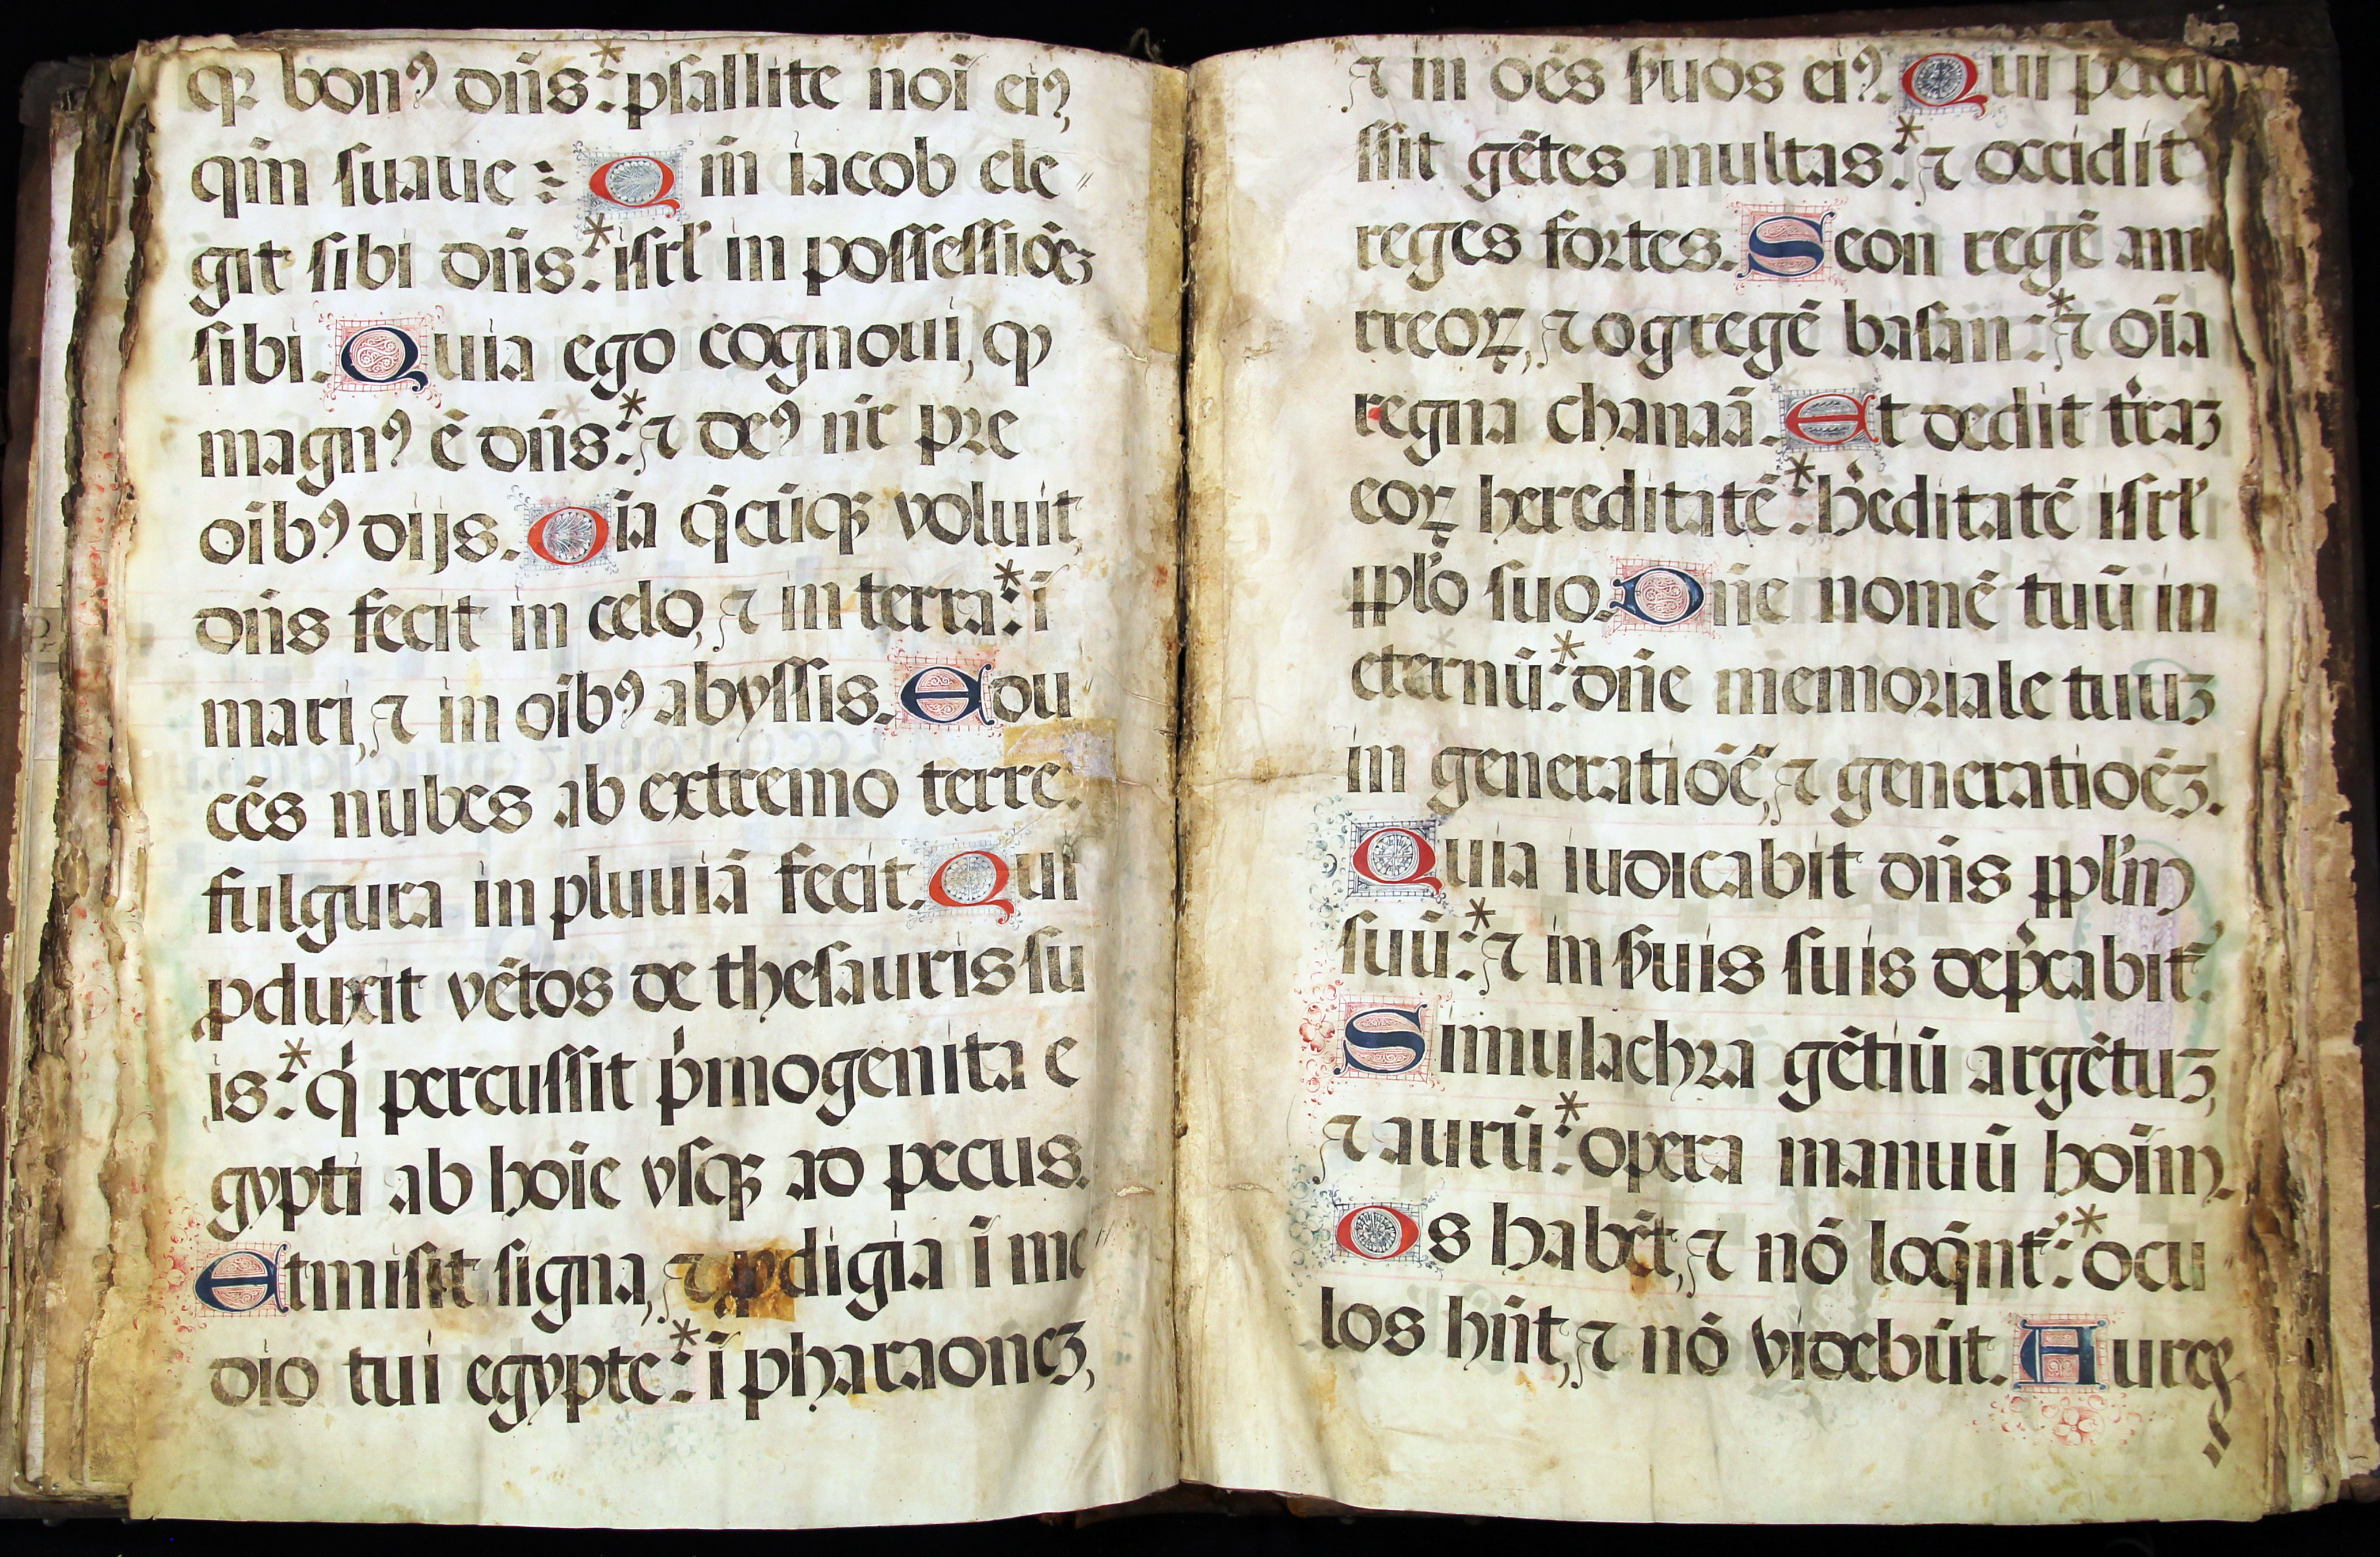 qꝛ bonꝰ dn̄s: * psallite noī eiꝰ,
qm̄ suaue: Qm̄ iacob ele
git sibi dn̄s: * isrl̄ in possessiōeꝫ
sibi. Quia ego cognoui, ꝙ
magnꝰ ē dn̄s: * ⁊ deꝰ nr̄ pꝛe
oībꝰ dijs. Oīa q̄cūqꝫ voluit
dn̄s fecit in celo, ⁊ in terra: * ī
mari, ⁊ in oībꝰ abyssis. Edu
cēs nubes ab extremo terre:
fulgura in pluuiā fecit. Qui
ꝓduxit vētos de thesauris su
is: * q̇ percussit ṗmogenita e
gypti ab hoīe vsqꝫ ad pecus.
Et misit signa, ⁊ ꝓdigia ī me
dio tui egypte: * ī pharaoneꝫ,
⁊ in oēs ẜuos eiꝰ. Qui percu
ssit gētes multas: * ⁊ occidit
reges foꝛtes. Seon regē amo
rreoꝝ, ⁊ og regē basan: * ⁊ oīa
regna chanaā. Et dedit tr̄aꝫ
eoꝝ hereditatē: * h̄editatē isrl̄
ppl̄o suo. Dn̄e nomē tuū in
eternū: * dn̄e memoꝛiale tuuꝫ
in generatiōē, ⁊ generatioēꝫ.
Quia iudicabit dn̄s ppl̄m
suū: * ⁊ in ẜuis suis dep̄cabit᷑.
Simulachꝛa gētiū argētuꝫ,
⁊ aurū: * opera manuū hoīm.
Os habēt, ⁊ nō loq̄nt᷑: * ocu
los hn̄t, ⁊ nō videbūt. Aures